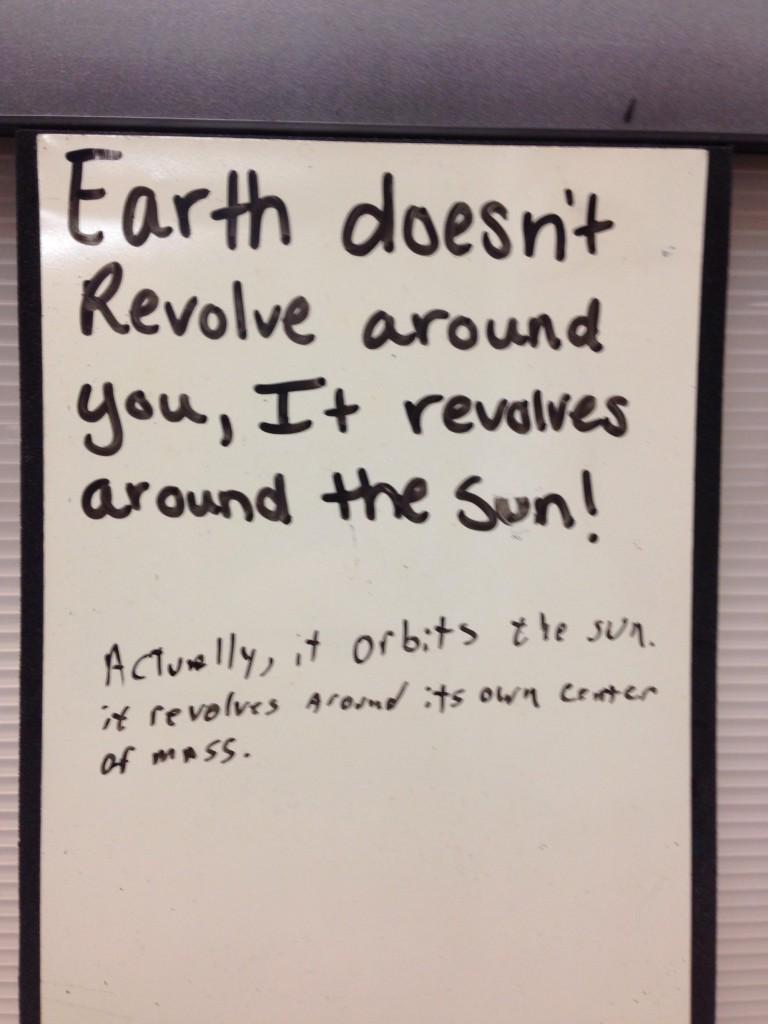 Earth doesn't
Revolve around
you, It revolves
around the Sun!
Actually, it orbits the sun.
it revolves around its own center
of mass.